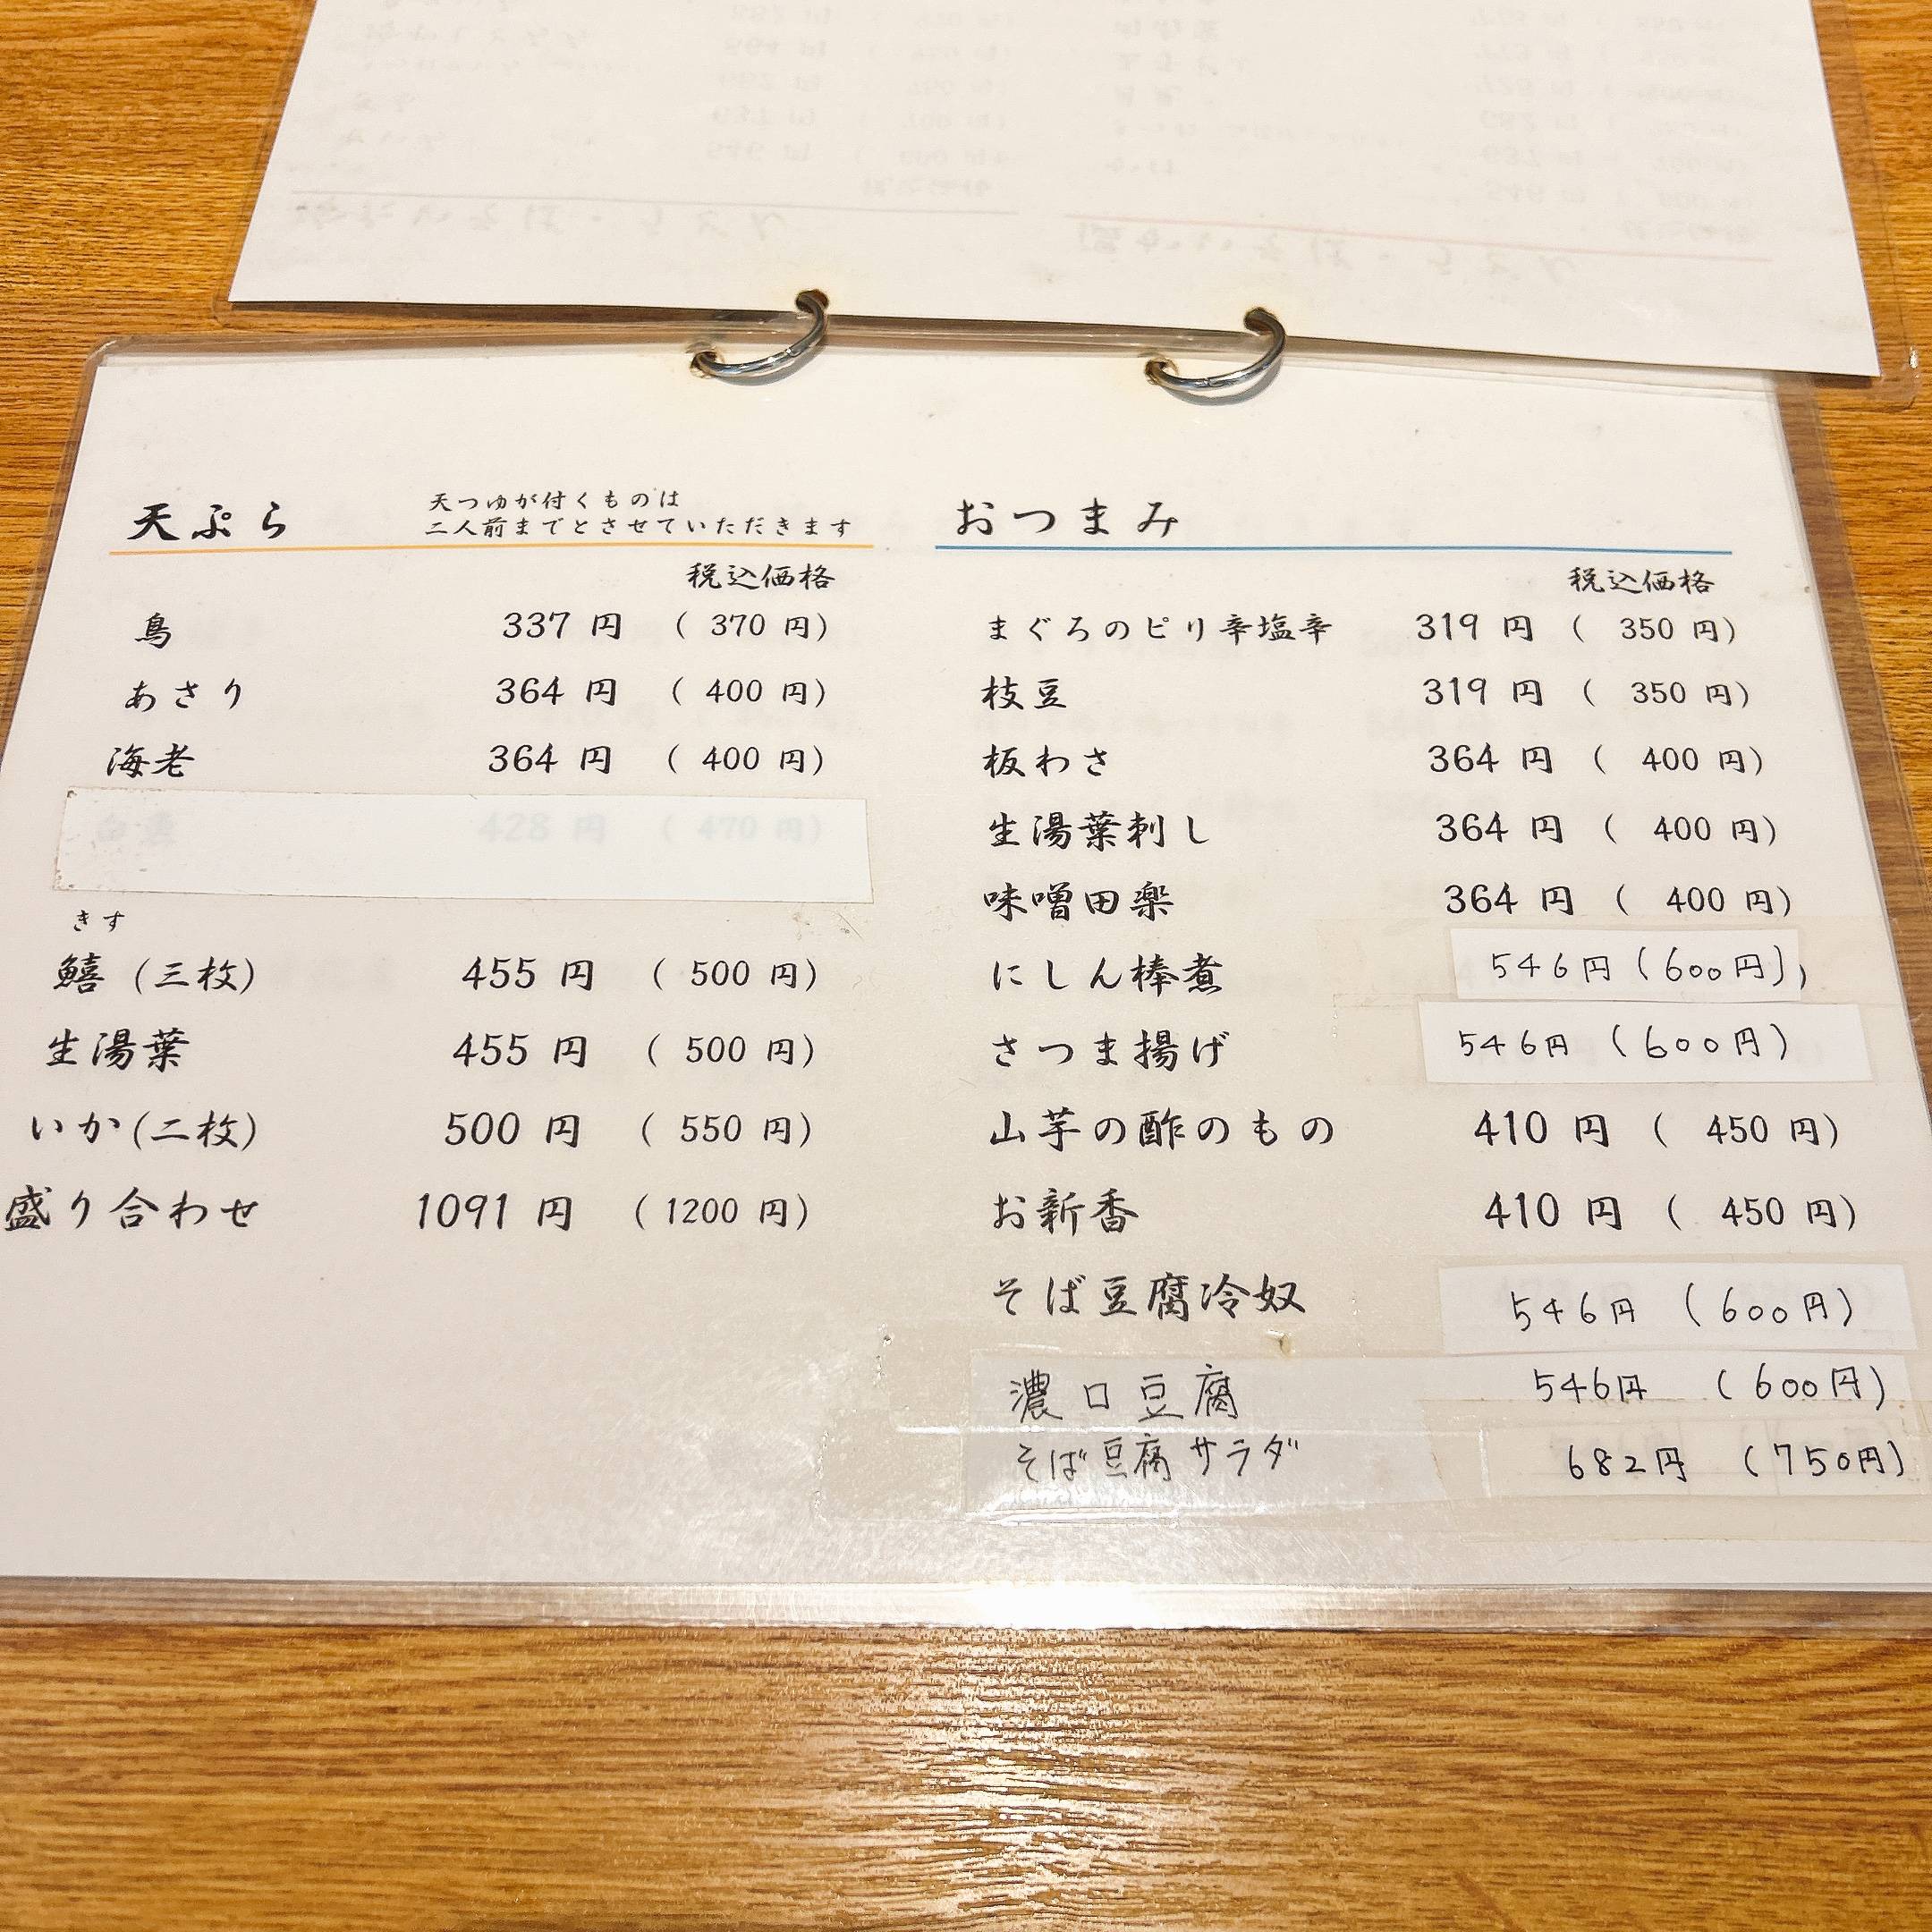 天ぷら
天つゆが付くものは
二人前までとさせていただきます
税込価格
鳥 337 円 ( 370 円)
あさり 364 円 ( 400 円)
海老 364 円 ( 400 円)
428 円 ( 470 円)
きす
鱚 (三枚) 455 円 ( 500 円)
生湯葉 455 円 ( 500 円)
いか(二枚) 500 円 ( 550 円)
盛り合わせ 1091 円 ( 1200 円)
おつまみ
税込価格
まぐろのピリ辛塩辛 319 円 ( 350 円)
枝豆 319 円 ( 350 円)
板わさ 364 円 ( 400 円)
生湯葉刺し 364 円 ( 400 円)
味噌田楽 364 円 ( 400 円)
にしん棒煮 546円 (600円)
さつま揚げ 546円 (600円)
山芋の酢のもの 410 円 ( 450 円)
お新香 410 円 ( 450 円)
そば豆腐冷奴 546円 (600円)
濃口豆腐 546円 (600円)
そば豆腐サラダ 682円 (750円)